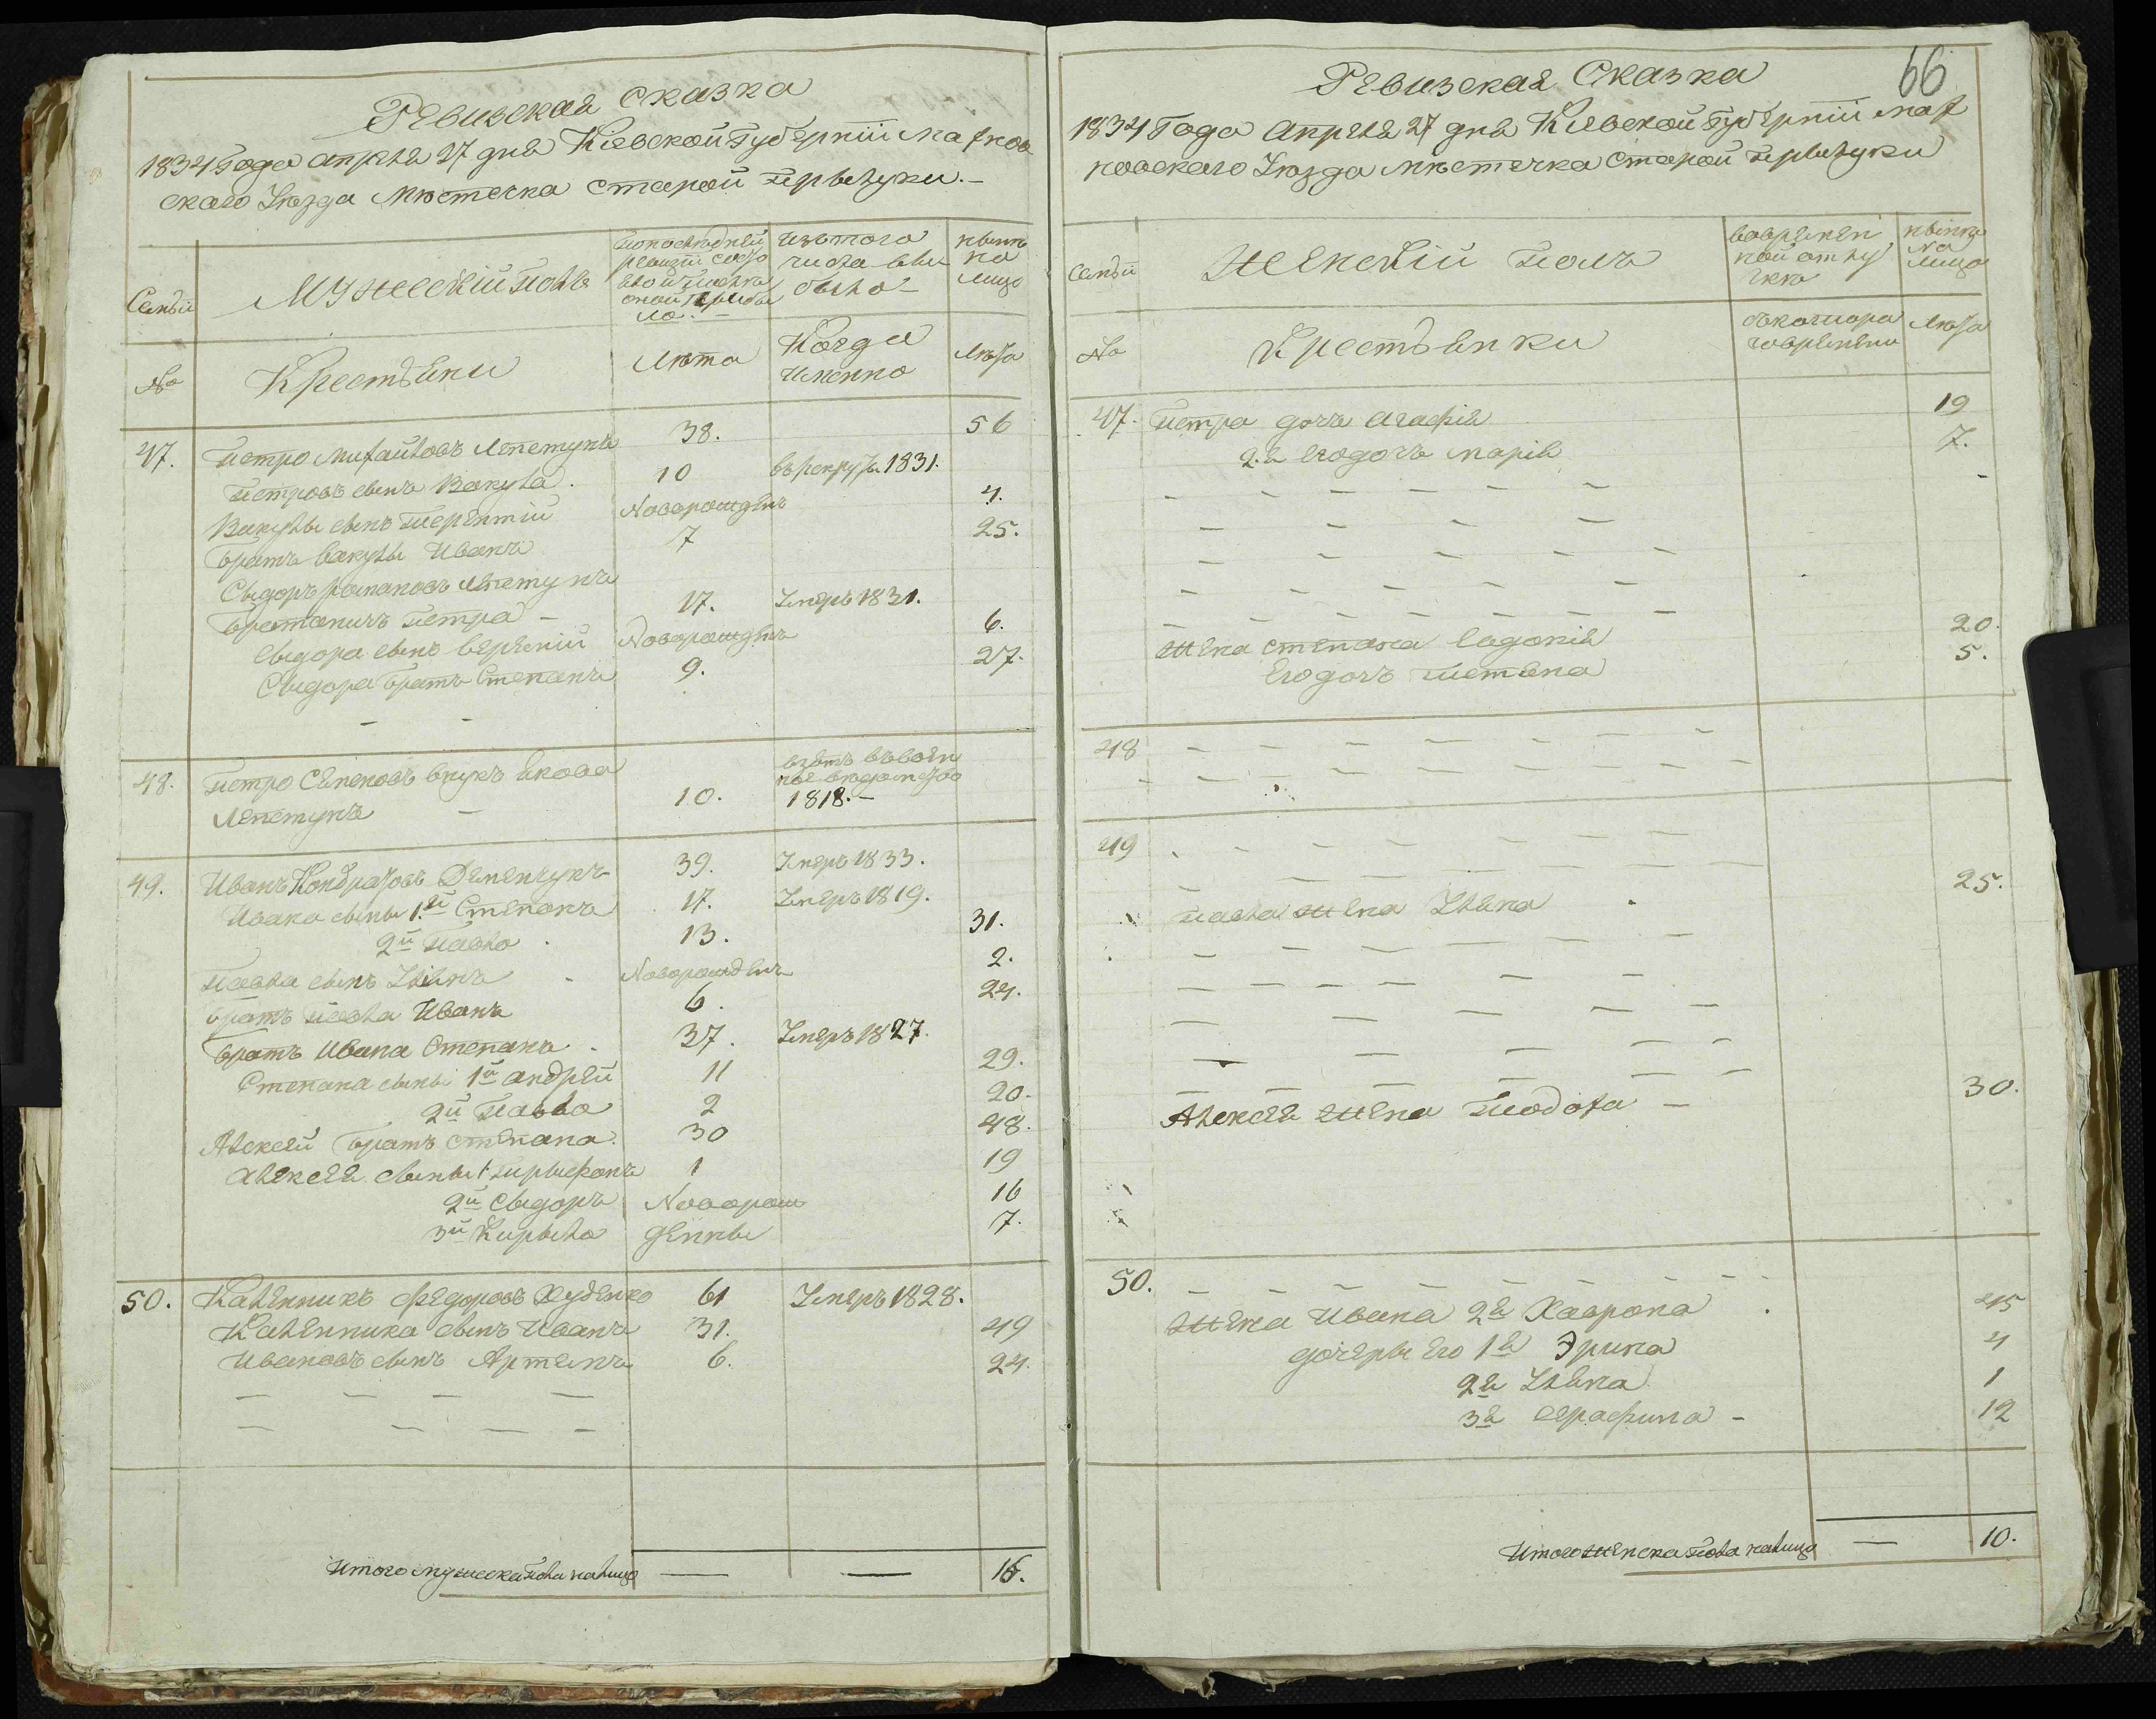 Ревизская сказка
1834 Года апреля 27 дня Киевской Губерніи Махнов
скаго Уезда Местечка старой Прылуки.
Семьи
Мужескій Полъ
по последней
ревизіи состо
яло и после
оной прибы
ло.
Изъ того
числа вы
было
ныне
на
лицо
№
Крестьяне
Лета
Когда
именно
Лета
47. Петро Михайловъ Лепетунъ 38. 56
Петровъ сынъ Вакула. 10 въ рекруты 1831.
Вакулы сынъ Терентій Новорожденъ 4.
братъ Вакулы Иванъ 7 25.
Сыдоръ романовъ Лепетунъ
братаничъ Петра - 17. Умеръ 1831.
Сыдора сынъ Верекій Новорожденъ 6.
Сыдора братъ Степанъ 9. 27.
48. Петро Семеновъ внукъ Якова
Лепетунъ - 10.
взятъ въ воен
ное ведомство
1818.-
49. Иванъ Кондратовъ Деменчукъ 39. Умеръ 1833.
Ивана сыны 1.й Степанъ 17. Умеръ 1819.
2й Павло. 13. 31.
Павла сынъ Ульянъ - Новорожденъ 2.
братъ Павла Иванъ 6. 24.
братъ Ивана Степанъ. 37. Умеръ 1827.
Степана сыны 1й андрей 11 29.
2й Павло 2 20.
Алексей братъ степана. 30 48.
алексея сыны 1 Тирыфонъ 1 19
2й Сыдоръ Новорож 16
3й Кирыло денны 7.
50. Каленникъ Федоровъ Худенко 61 Умеръ 1828.
Каленника сынъ Иванъ 31. 49
Ивановъ сынъ Артемъ 6. 24.
Итого мужеска пола налицо — — 16.
66
Ревизская Сказка
1834 Года Апреля 27 дня Киевской Губерніи Мах
новскаго Уезда Местечка Старой Прылуки
Семьи
Женскій полъ
во времен
ной отлу
чке
ныне
на
лицо
№
Крестьянки
съ котора
го времени
Лета
47. Петра дочь агафія 19
2.я его дочь марія 7.
жена степана Евдокія 20.
Его дочь Тетяна 5.
48
49
павла жена Уляна 25.
Алексея жена Теодота - 30.
50.
жена Ивана 2я Хаврона 45
дочеры его 1я Эрина 4
2я Уляна 1
3я Серафима - 12
Итого женска пола налицо — 10.